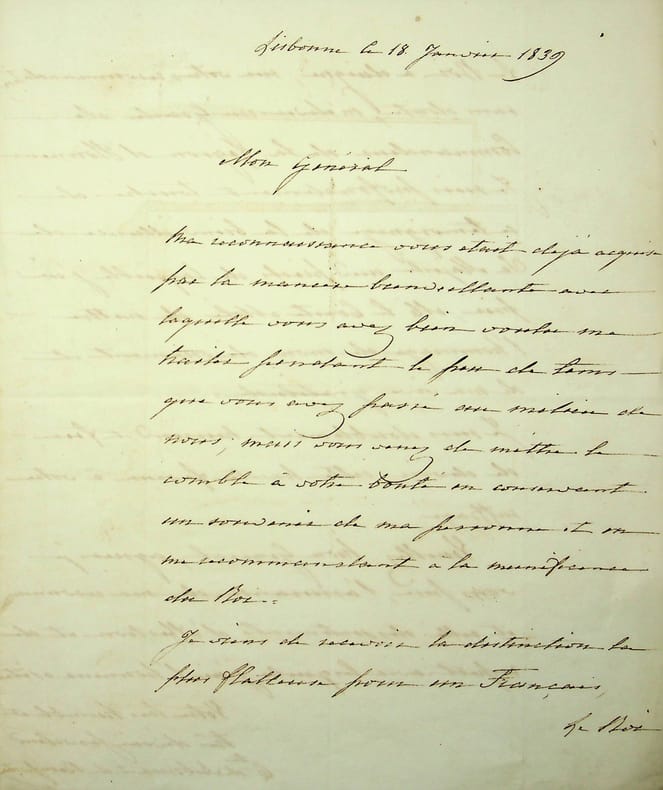 Lisbonne le 18 Janvier 1839
Mon Général
Ma reconnaissance vous était dejà acquise
par la manière bienveillante avec
laquelle vous avez bien voulu me
traiter pendant le peu de tems
que vous avez passé au milieu de
nous; mais vous venez de mettre le
comble à votre bonté en conservant
un souvenir de ma personne et en
me recommandant à la munificence
du Roi.
Je viens de recevoir la distinction la
plus flatteuse pour un Français,
Le Roi